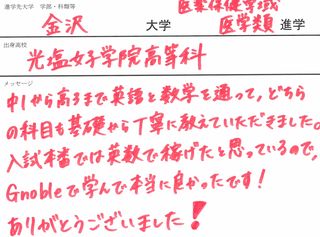 進学先大学　学部・科類等
医薬保健学域
金沢 大学 医学類 進学
出身高校
光塩女子学院高等科
メッセージ
中1から高3まで英語と数学を通って、どちら
の科目も基礎から丁寧に教えていただきました。
入試本番では英数で稼げたと思っているので、
Gnobleで学んで本当に良かったです!
ありがとうございました!